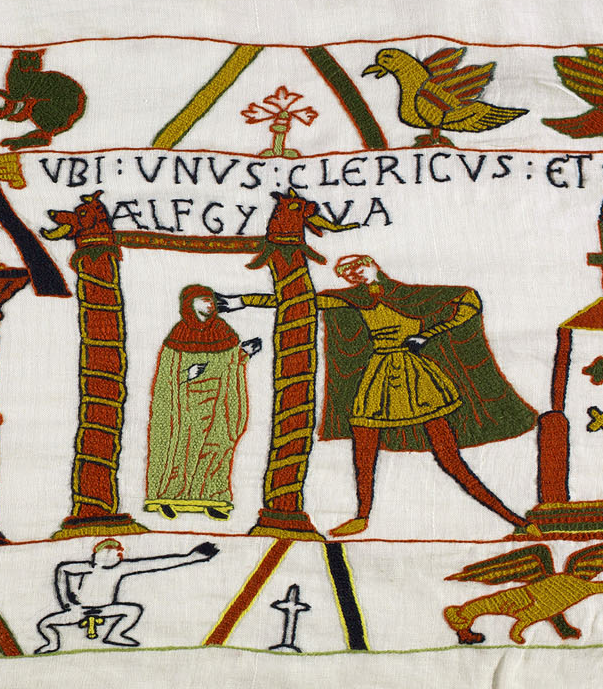 VBI : VNVS : CLERICVS : ET
ÆLFGYVA